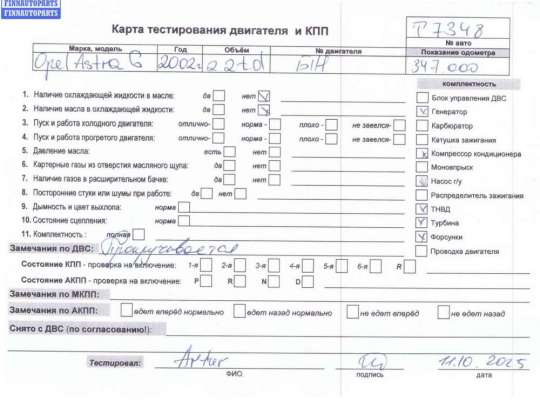 FINNAUTOPARTS
FINNAUTOPARTS
Карта тестирования двигателя и КПП
T 7348
№ авто
Марка, модель Год Объём № двигателя Показание одометра
Opel Astra G 2002г 2.2td 347.000
комплектность
1. Наличие охлаждающей жидкости в масле: да нет V
Блок управления ДВС
2. Наличие масла в охлаждающей жидкости: да нет V
Генератор V
3. Пуск и работа холодного двигателя: отлично- норма - плохо - не завелся-
Карбюратор
4. Пуск и работа прогретого двигателя: отлично- норма - плохо - не завелся-
Катушка зажигания
5. Давление масла: есть нет
Компрессор кондиционера
6. Картерные газы из отверстия масляного щупа: да нет
Моновпрыск
7. Наличие газов в расширительном бачке: да нет
Насос г/у V
8. Посторонние стуки или шумы при работе: да нет
Распределитель зажигания
9. Дымность и цвет выхлопа: норма
ТНВД V
10. Состояние сцепления: норма
Турбина V
11. Комплектность : полная
Форсунки V
Замечания по ДВС: Прокручивается
Проводка двигателя
Состояние КПП - проверка на включение: 1-я 2-я 3-я 4-я 5-я 6-я R
Состояние АКПП - проверка на включение: P R N D
Замечания по МКПП:
Замечания по АКПП: едет вперёд нормально едет назад нормально не едет вперёд не едет назад
Снято с ДВС (по согласованию!):
Тестировал: Artur 11.10.2025
ФИО. подпись дата